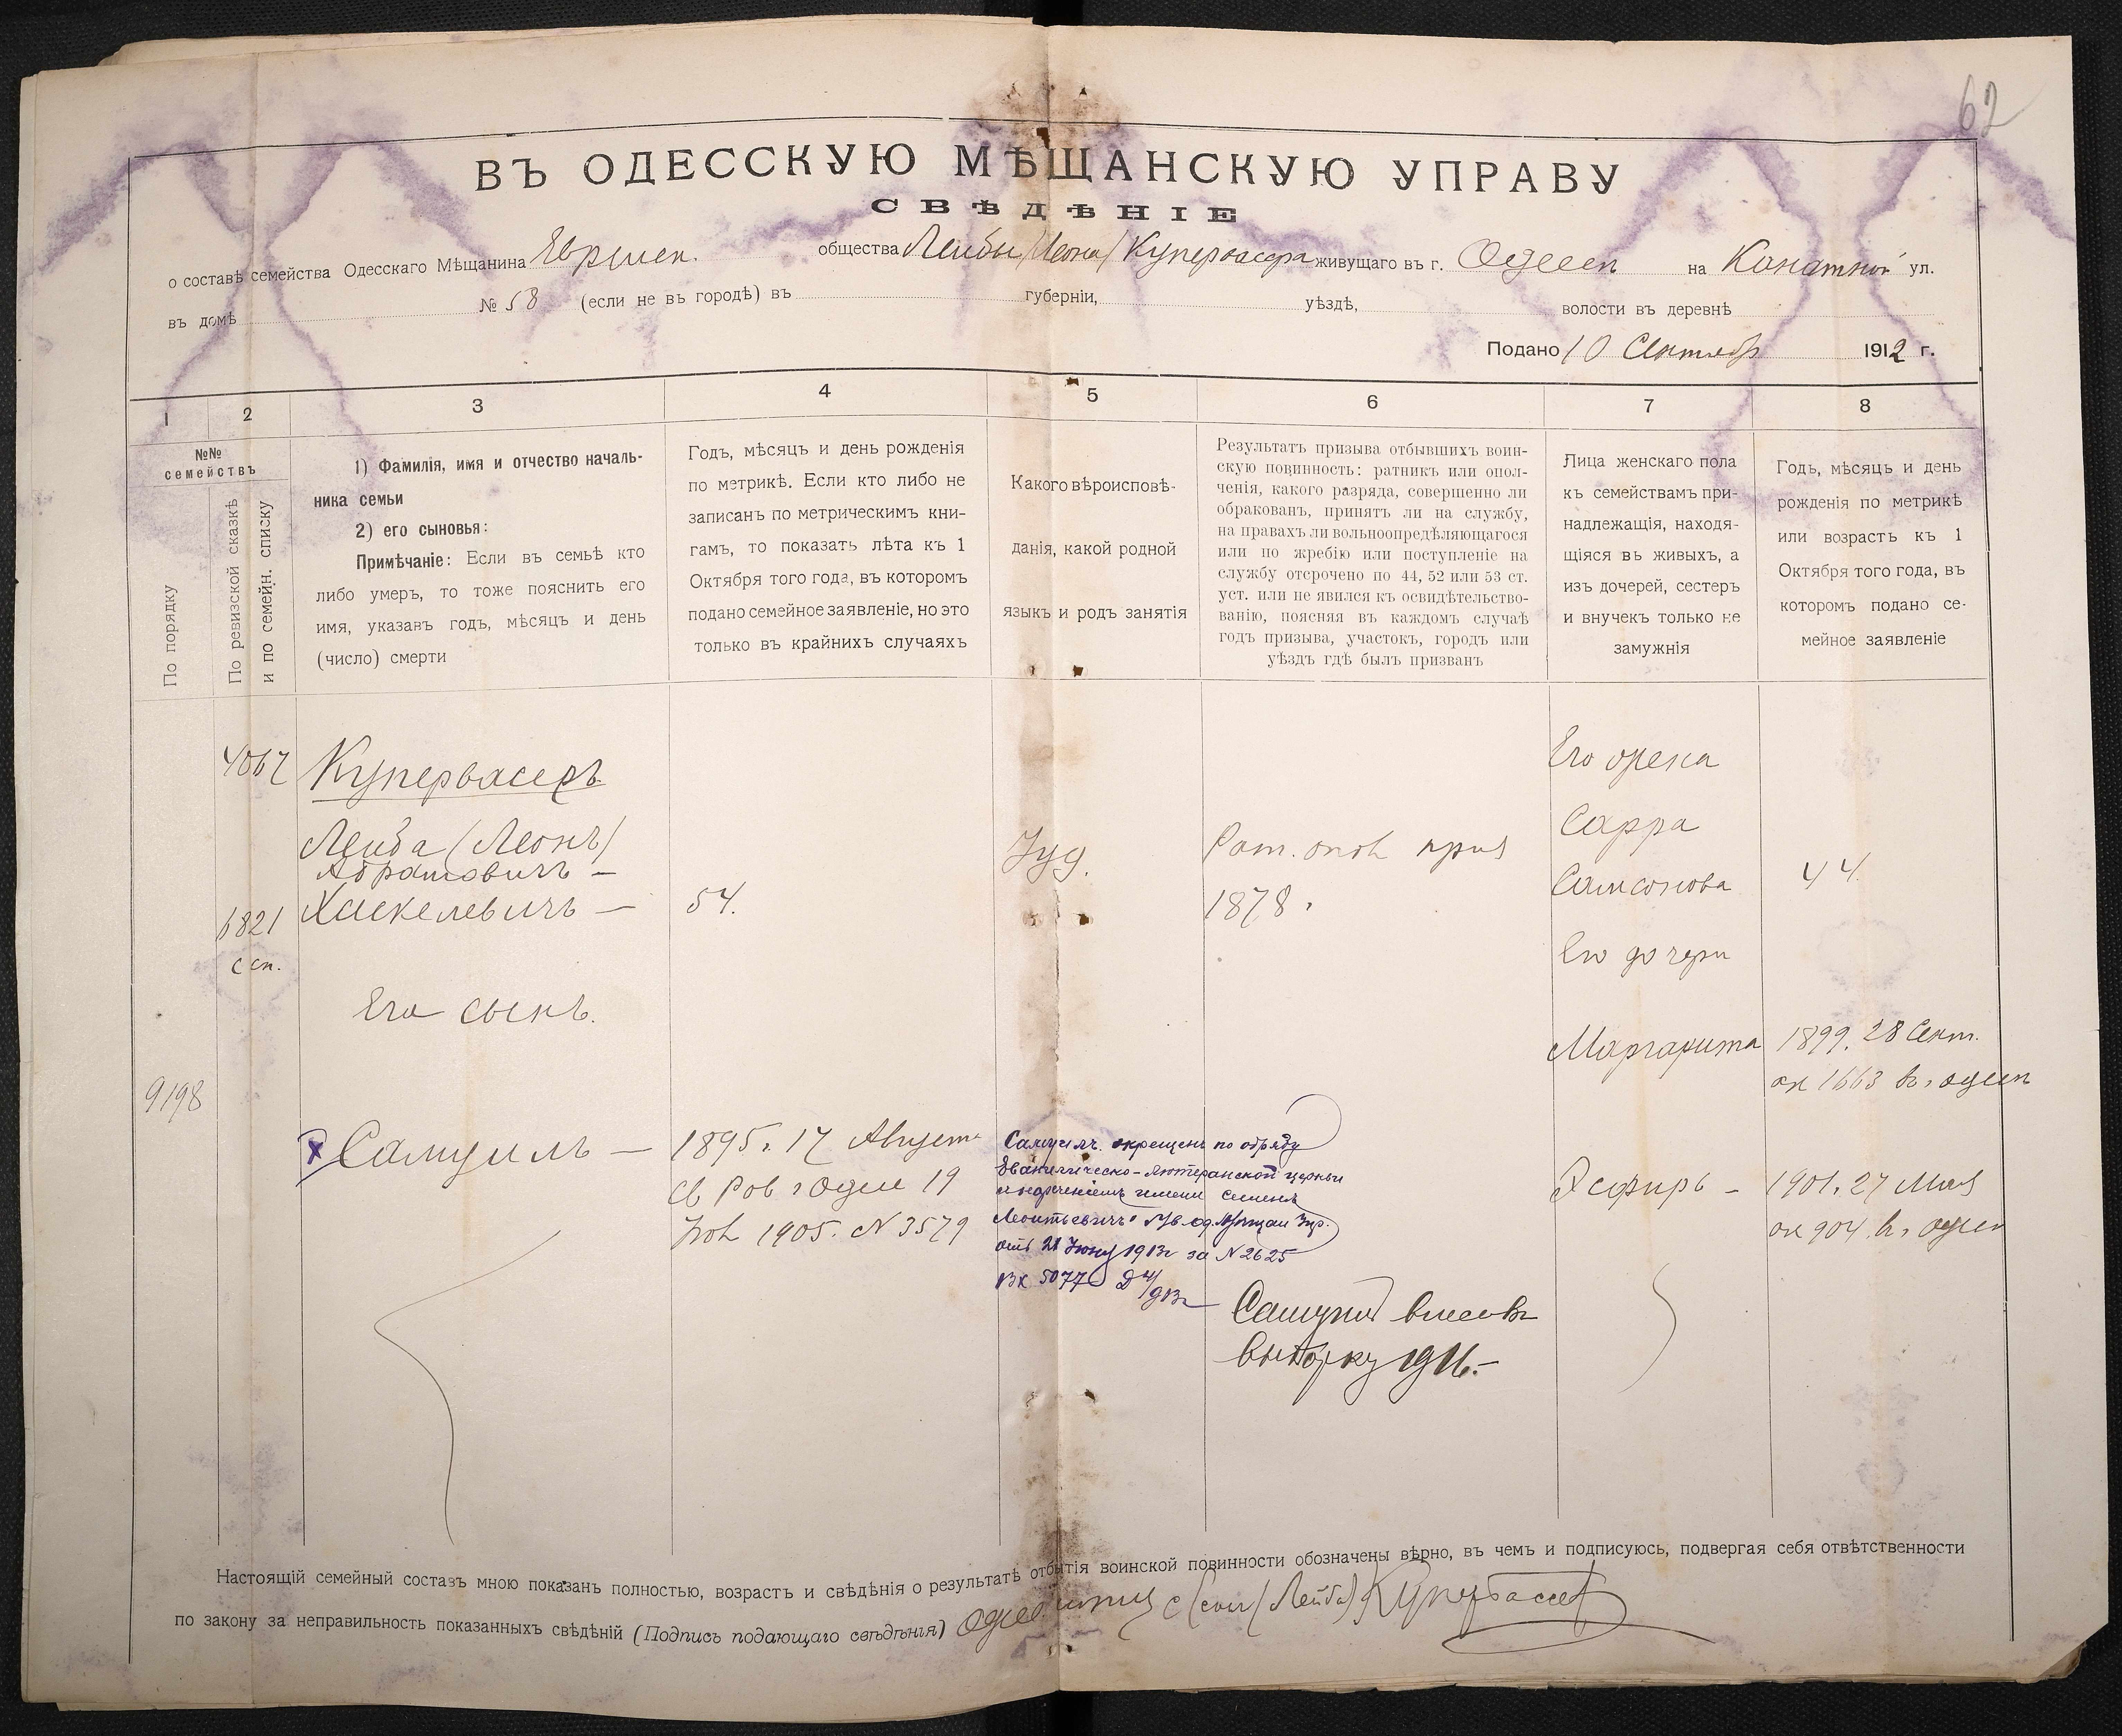 62
ВЪ ОДЕССКУЮ МѢЩАНСКУЮ УПРАВУ
СВѢДѢНІЕ
о составѣ семейства Одесскаго Мѣщанина Еврейск. общества Лейбы /Леона/ Купервассера живущаго въ г. Одессѣ на Канатной ул.
въ домѣ № 58 (если не въ городѣ) въ губерніи, уѣздѣ, волости въ деревнѣ
Подано 10 Сентябр 1912 г.
1 2 3 4 5 6 7 8
№№ семействъ
По порядку
По ревизской сказкѣ
и по семейн. списку
1) Фамилія, имя и отчество началь-
ника семьи
2) его сыновья:
Примѣчаніе: Если въ семьѣ кто
либо умеръ, то тоже пояснить его
имя, указавъ годъ, мѣсяцъ и день
(число) смерти
Годъ, мѣсяцъ и день рожденія
по метрикѣ. Если кто либо не
записанъ по метрическимъ кни-
гамъ, то показать лѣта къ 1
Октября того года, въ которомъ
подано семейное заявленіе, но это
только въ крайнихъ случаяхъ
Какого вѣроисповѣ-
данія, какой родной
языкъ и родъ занятія
Результатъ призыва отбывшихъ воин-
скую повинность: ратникъ или опол-
ченія, какого разряда, совершенно ли
обракованъ, принятъ ли на службу,
на правахъ ли вольноопредѣляющагося
или по жребію или поступленіе на
службу отсрочено по 44, 52 или 53 ст.
уст. или не явился къ освидѣтельство-
ванію, поясняя въ каждомъ случаѣ
годъ призыва, участокъ, городъ или
уѣздъ гдѣ былъ призванъ
Лица женскаго пола
къ семействамъ при-
надлежащія, находя-
щіяся въ живыхъ, а
изъ дочерей, сестеръ
и внучекъ только не
замужнія
Годь, мѣсяць и день
рожденія по метрикѣ
или возрастъ къ 1
Октября того года, въ
которомъ подано се-
мейное заявленіе
4067 Купервасеръ
Лейба (Леонъ)
Абрамовичъ —
6821 Хаскелевичъ — 54.
с сп.
Іуд.
Рат. опол приз
1878 г
Его жена
Сарра
Самсонова 44
Его дочери
Маргарита 1899. 28 Сент.
№ 1663 в г. Одессѣ
Эсфирь — 1901. 27 Мая
№ 904 в г. Одес
Его сынъ.
9198
Самуилъ — 1895 г. 17 Августа
Св Рав г Одес 19
Ноя 1905. N 3579
Самуилъ окрещенъ по обряду
Евангелическо-Лютеранской церкви
с нареченіемъ имени Семенъ
Леонтьевичъ Ув. Од. Мѣщан Упр.
отъ 21 Іюня 1913г за N 2625
Вх 5077
Самуил внесенъ
выборку 1916.—
Настоящій семейный составъ мною показанъ полностью, возрастъ и свѣдѣнія о результатѣ отбытія воинской повинности обозначены вѣрно, въ чемъ и подписуюсь, подвергая себя отвѣтственности
по закону за неправильность показанныхъ свѣдѣній (Подпись подающаго свѣдѣнія) (Лейба) Купервассер